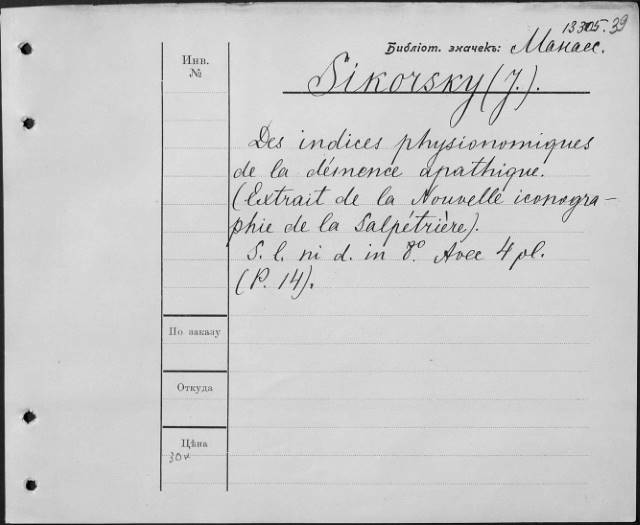 13305.39
Библіот. значекъ: Манасс.
Инв.
№
Sikorsky (J.).
Des indices physionomiques
de la démence apathique.
(Extrait de la Nouvelle iconogra-
phie de la Salpétrière).
S. l. ni d. in 8º. Avec 4 pl.
(P. 14).
По заказу
Откуда
Цѣна
30к